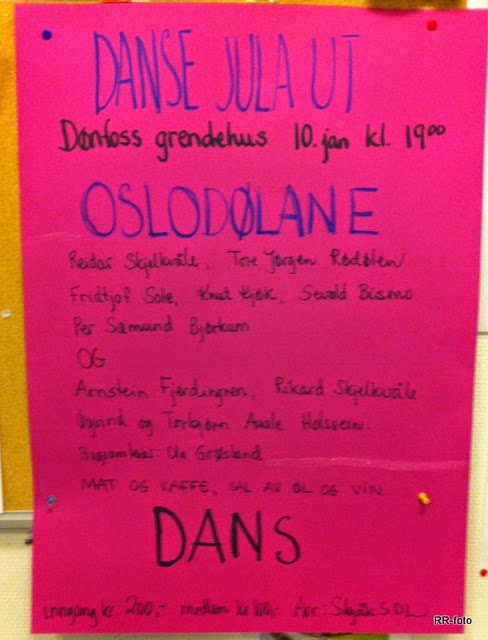 DANSE JULA UT
Dønfoss grendehus 10. jan kl. 19⁰⁰
OSLODØLANE
Reidar Skjelkvåle, Tore Jørgen Rødølen
Fridtjof Sole, Knut Kjøk, Sevald Bismo
Per Sæmund Bjørkum
OG
Arnstein Fjerdingren, Rikard Skjelkvåle
Øyvind og Torbjørn Aaale Holsveen.
Programleiar: Ola Grøsland
MAT OG KAFFE, SAL AV ØL OG VIN
DANS
inngang kr 200,- medlem kr 100,- Arr: Skjåk S.D.L
RR-foto